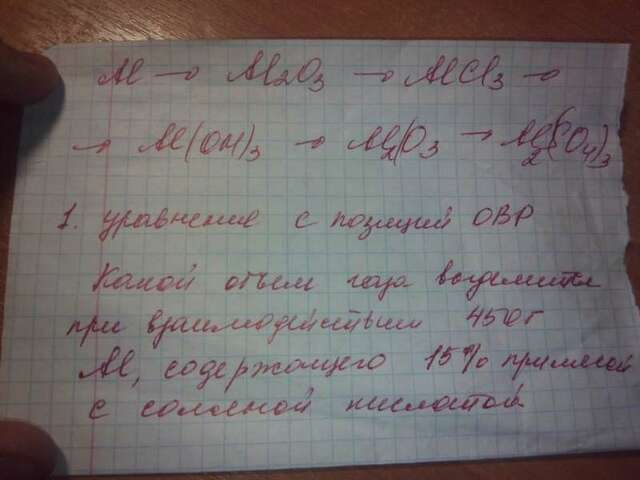 Al → Al₂O₃ → AlCl₃ →
→ Al(OH)₃ → Al₂O₃ → Al₂(SO₄)₃
1. уравнение с позиций ОВР
Какой объем газа выделится
при взаимодействии 450г
Al, содержащего 15% примесей
с соляной кислотой